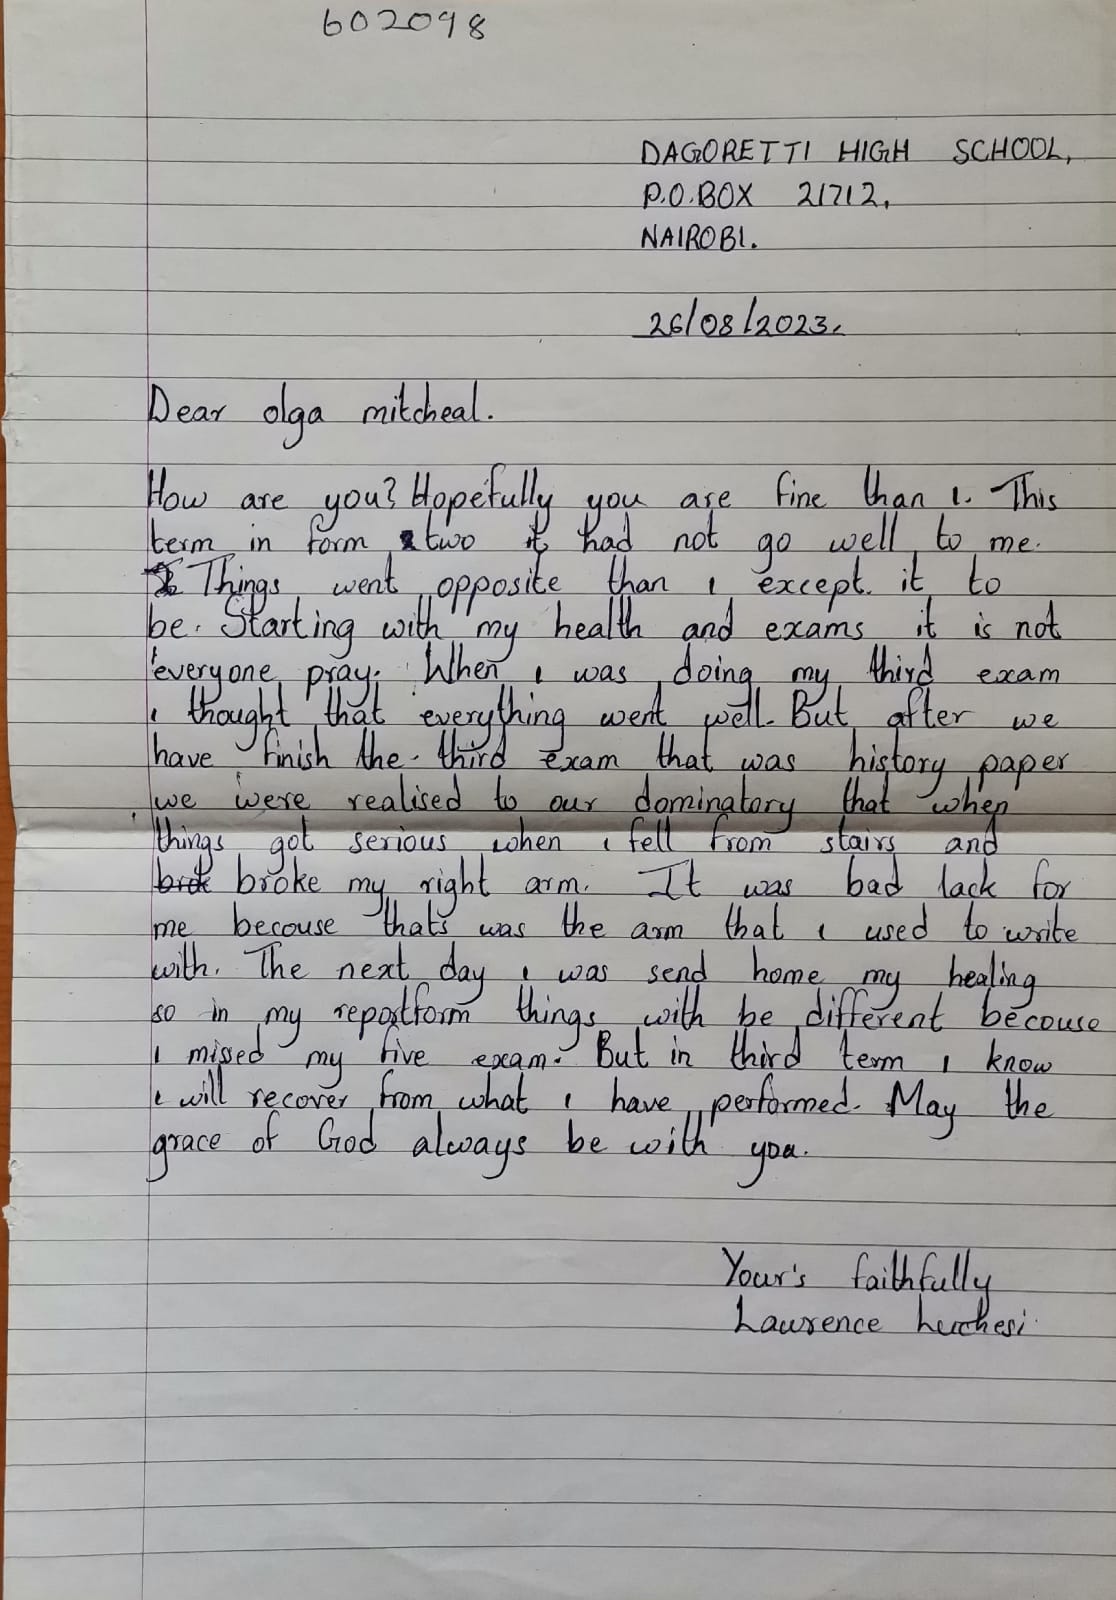 602098
DAGORETTI HIGH SCHOOL,
P.O.BOX 21712,
NAIROBI.
26/08/2023.
Dear olga mitcheal.
How are you? Hopefully you are fine than I. This
term in form two it had not go well to me.
Things went opposite than I except it to
be. Starting with my health and exams it is not
everyone pray. When I was doing my third exam
I thought that everything went well. But after we
have finish the third exam that was history paper
we were realised to our dominatory that when
things got serious when I fell from stairs and
broke my right arm. It was bad lack for
me becouse thats was the arm that I used to write
with. The next day I was send home my healing
so in my reportform things with be different becouse
I missed my five exam. But in third term I know
I will recover from what I have performed. May the
grace of God always be with you.
Your's faithfully
Lawrence